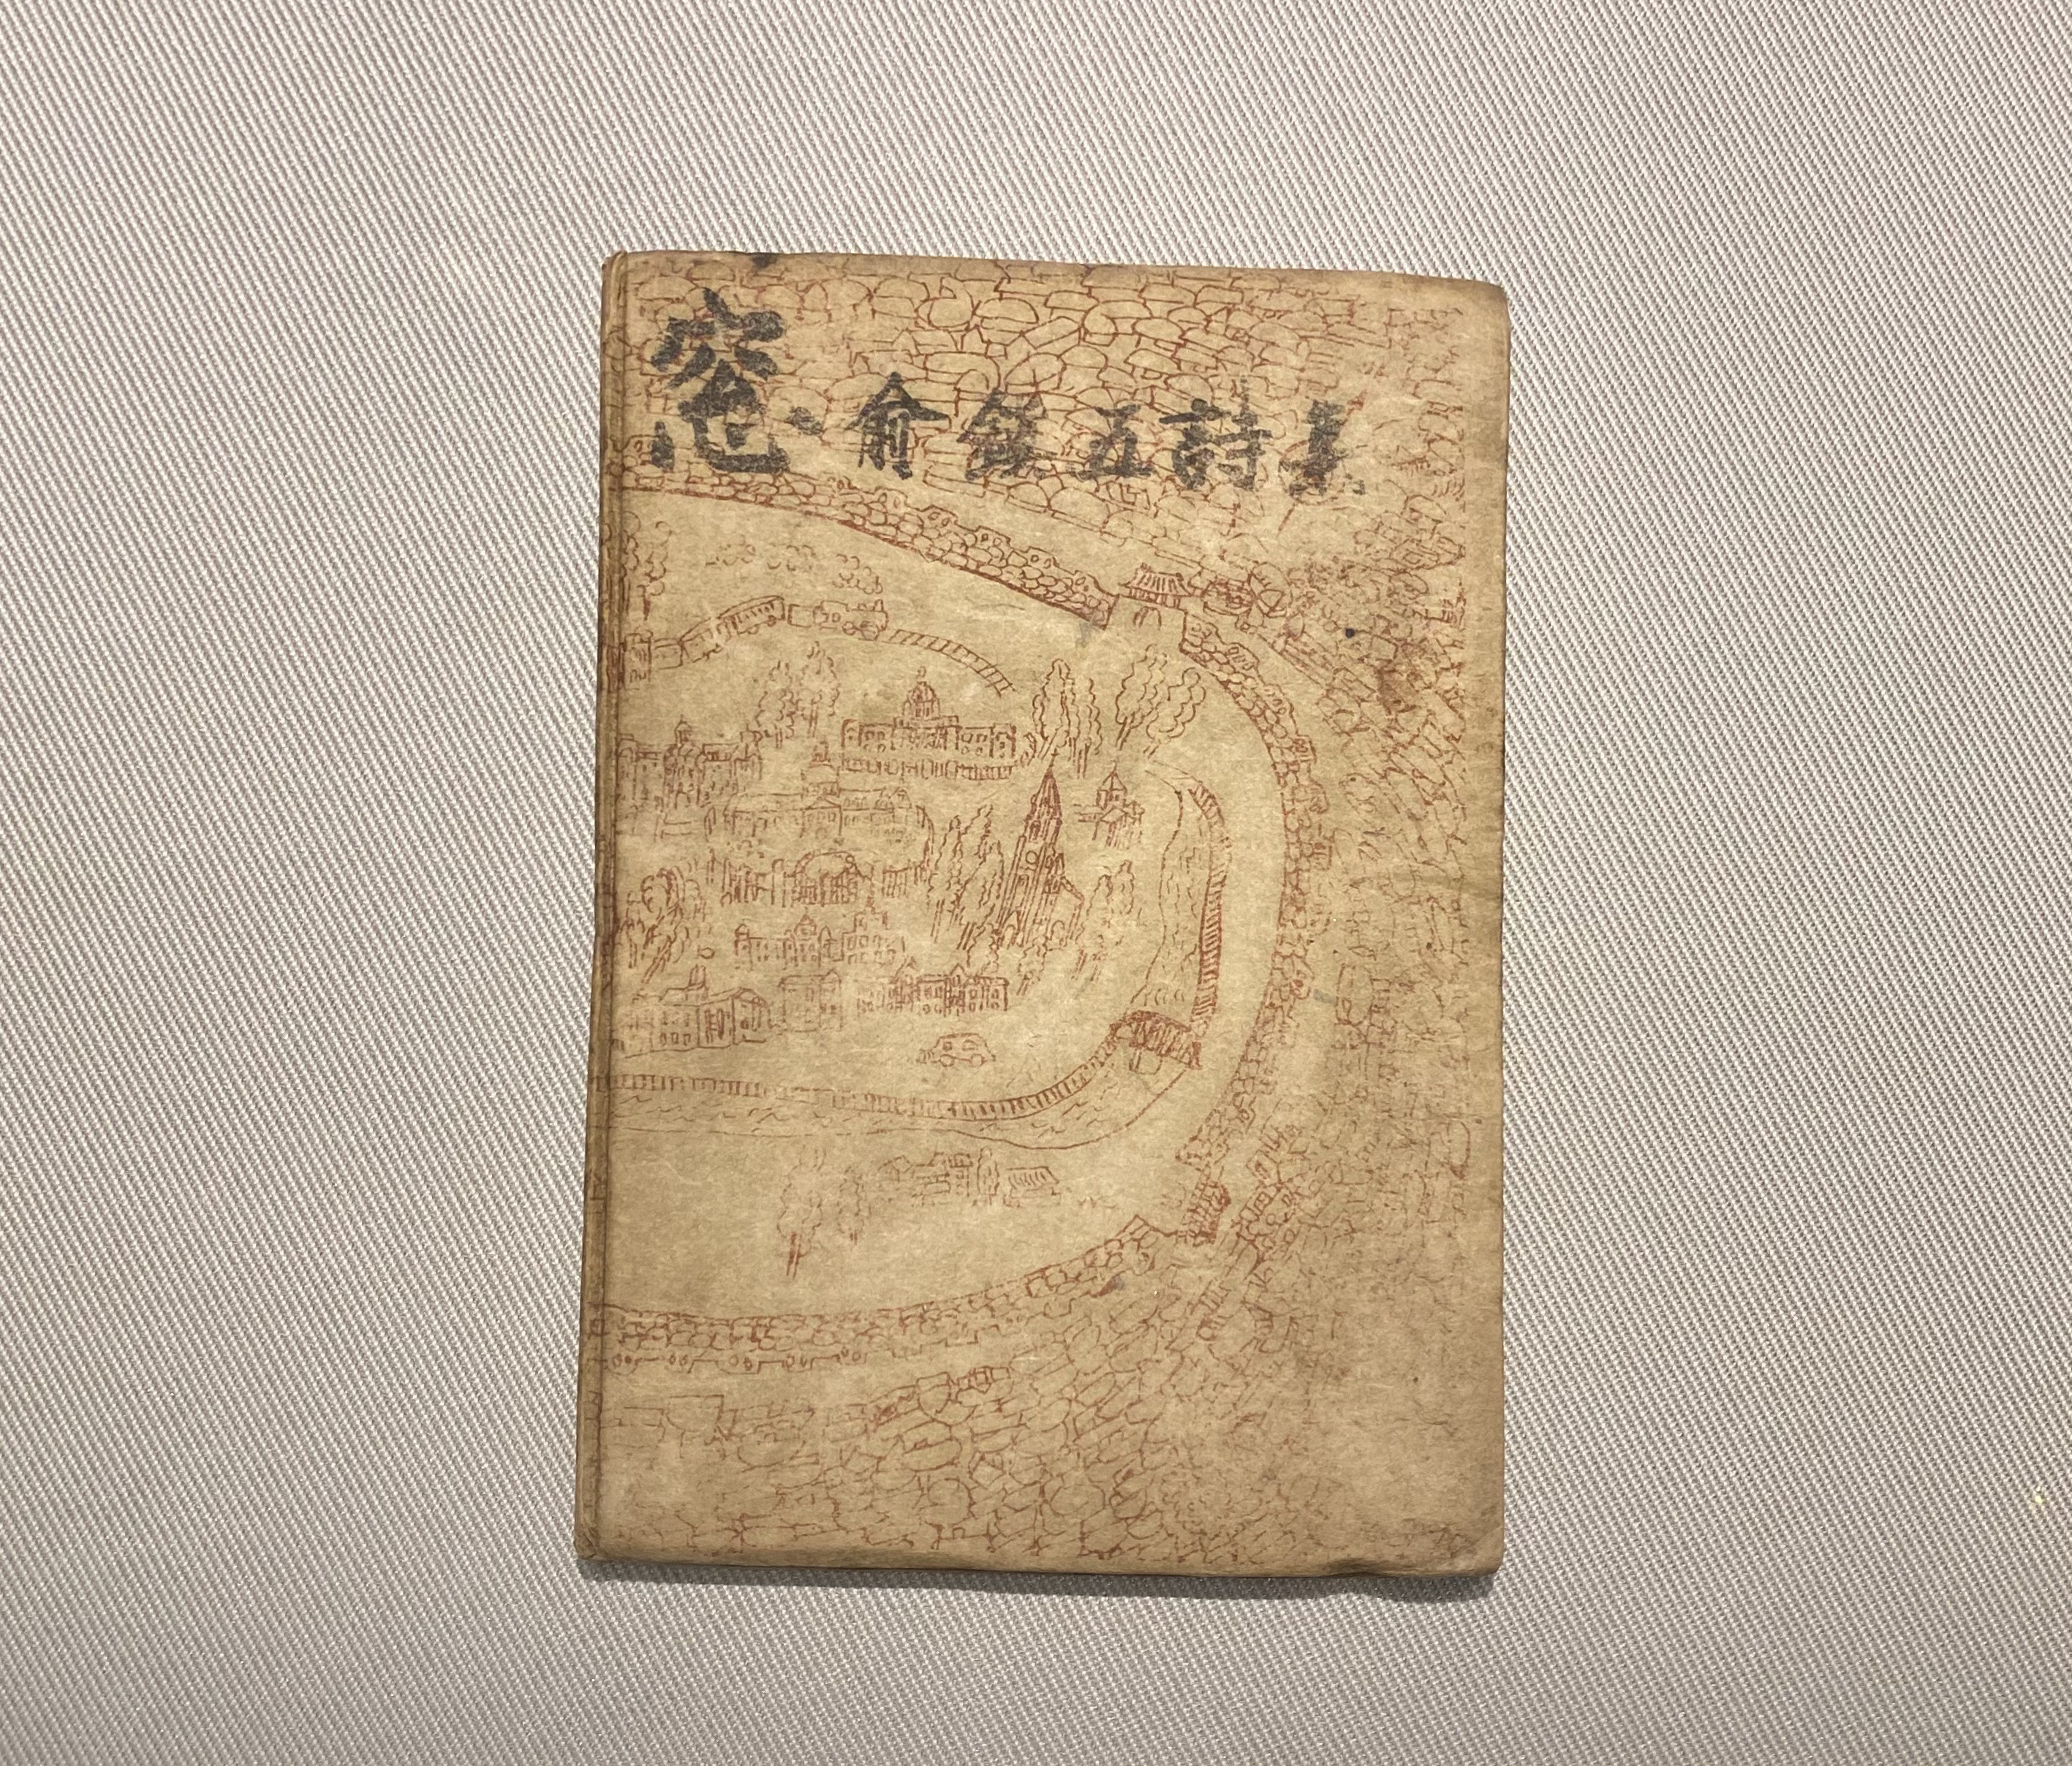 窓·俞鎭五詩集